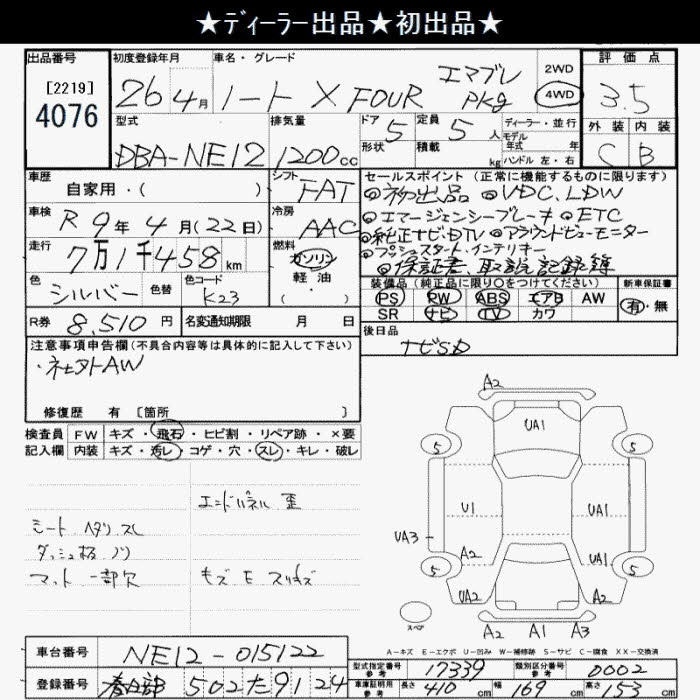 ★ディーラー出品★初出品★
出品番号 初度登録年月 車名・グレード 評価点
[2219]
4076
26 4月 ノート X FOUR エマブレ PKg 2WD 4WD 3.5
型式 排気量 ドア 5 定員 5人 ディーラー・並行 外装 内装
形状 積載 kg モデル年式 年 ハンドル 左・右
DBA-NE12 1200cc C B
車歴 自家用・( ) シフト FAT
セールスポイント (正常に機能するものに限ります)
◎初出品 ◎VDC、LDW
◎エマージェンシーブレーキ ◎ETC
◎純正ナビ・DTV ◎アラウンドビューモニター
◎プッシュスタート・インテリキー
◎保証書、取説、記録簿
車検 R 9年 4月(22日) 冷房 AAC
走行 7万1千458km 燃料 ガソリン 軽油・( )
色 シルバー 色替 色コード K23
装備品 (純正品に限り○をつけてください) 新車保証書
PS PW ABS エアB AW 有・無
SR ナビ TV カワ
R券 8,510円 名変通知期限 月 日
後日品
ナビSD
注意事項申告欄(不具合内容等は具体的に記入して下さい)
・社外AW
修復歴 有 [箇所 ]
検査員 FW キズ・飛石・ヒビ割・リペア跡・×要
記入欄 内装 キズ・汚レ・コゲ・穴・スレ・キレ・破レ
エンドパネル 歪
シート ヘタリ スレ
ダッシュ板 ノリ
マット 一部欠
A2
UA1
5 5
U1 UA1
UA3
A2 UA1
5 5
UA2 A2
スペア
A2 A1 A3
A-キズ E-エクボ U-凹み W-補修跡 S-サビ C-腐食 XX-交換済
車台番号 NE12-015122
型式指定番号 参考 17339 類別区分番号 参考 0002
登録番号 春日部 502 た 91 24
車庫証明用 参考 長さ 410cm 幅 169cm 高さ 153cm